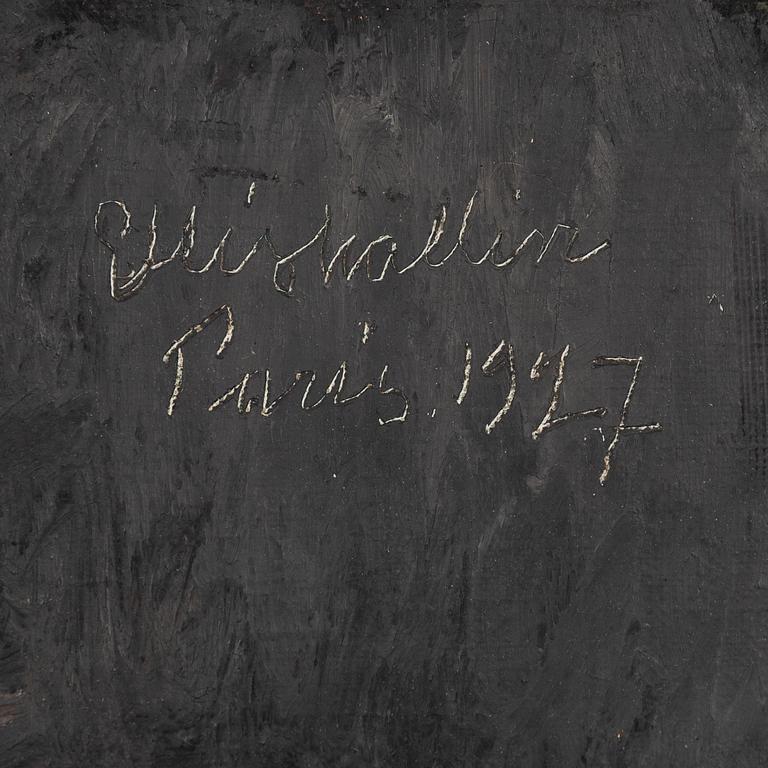 Ellis Wallin
Paris. 1927